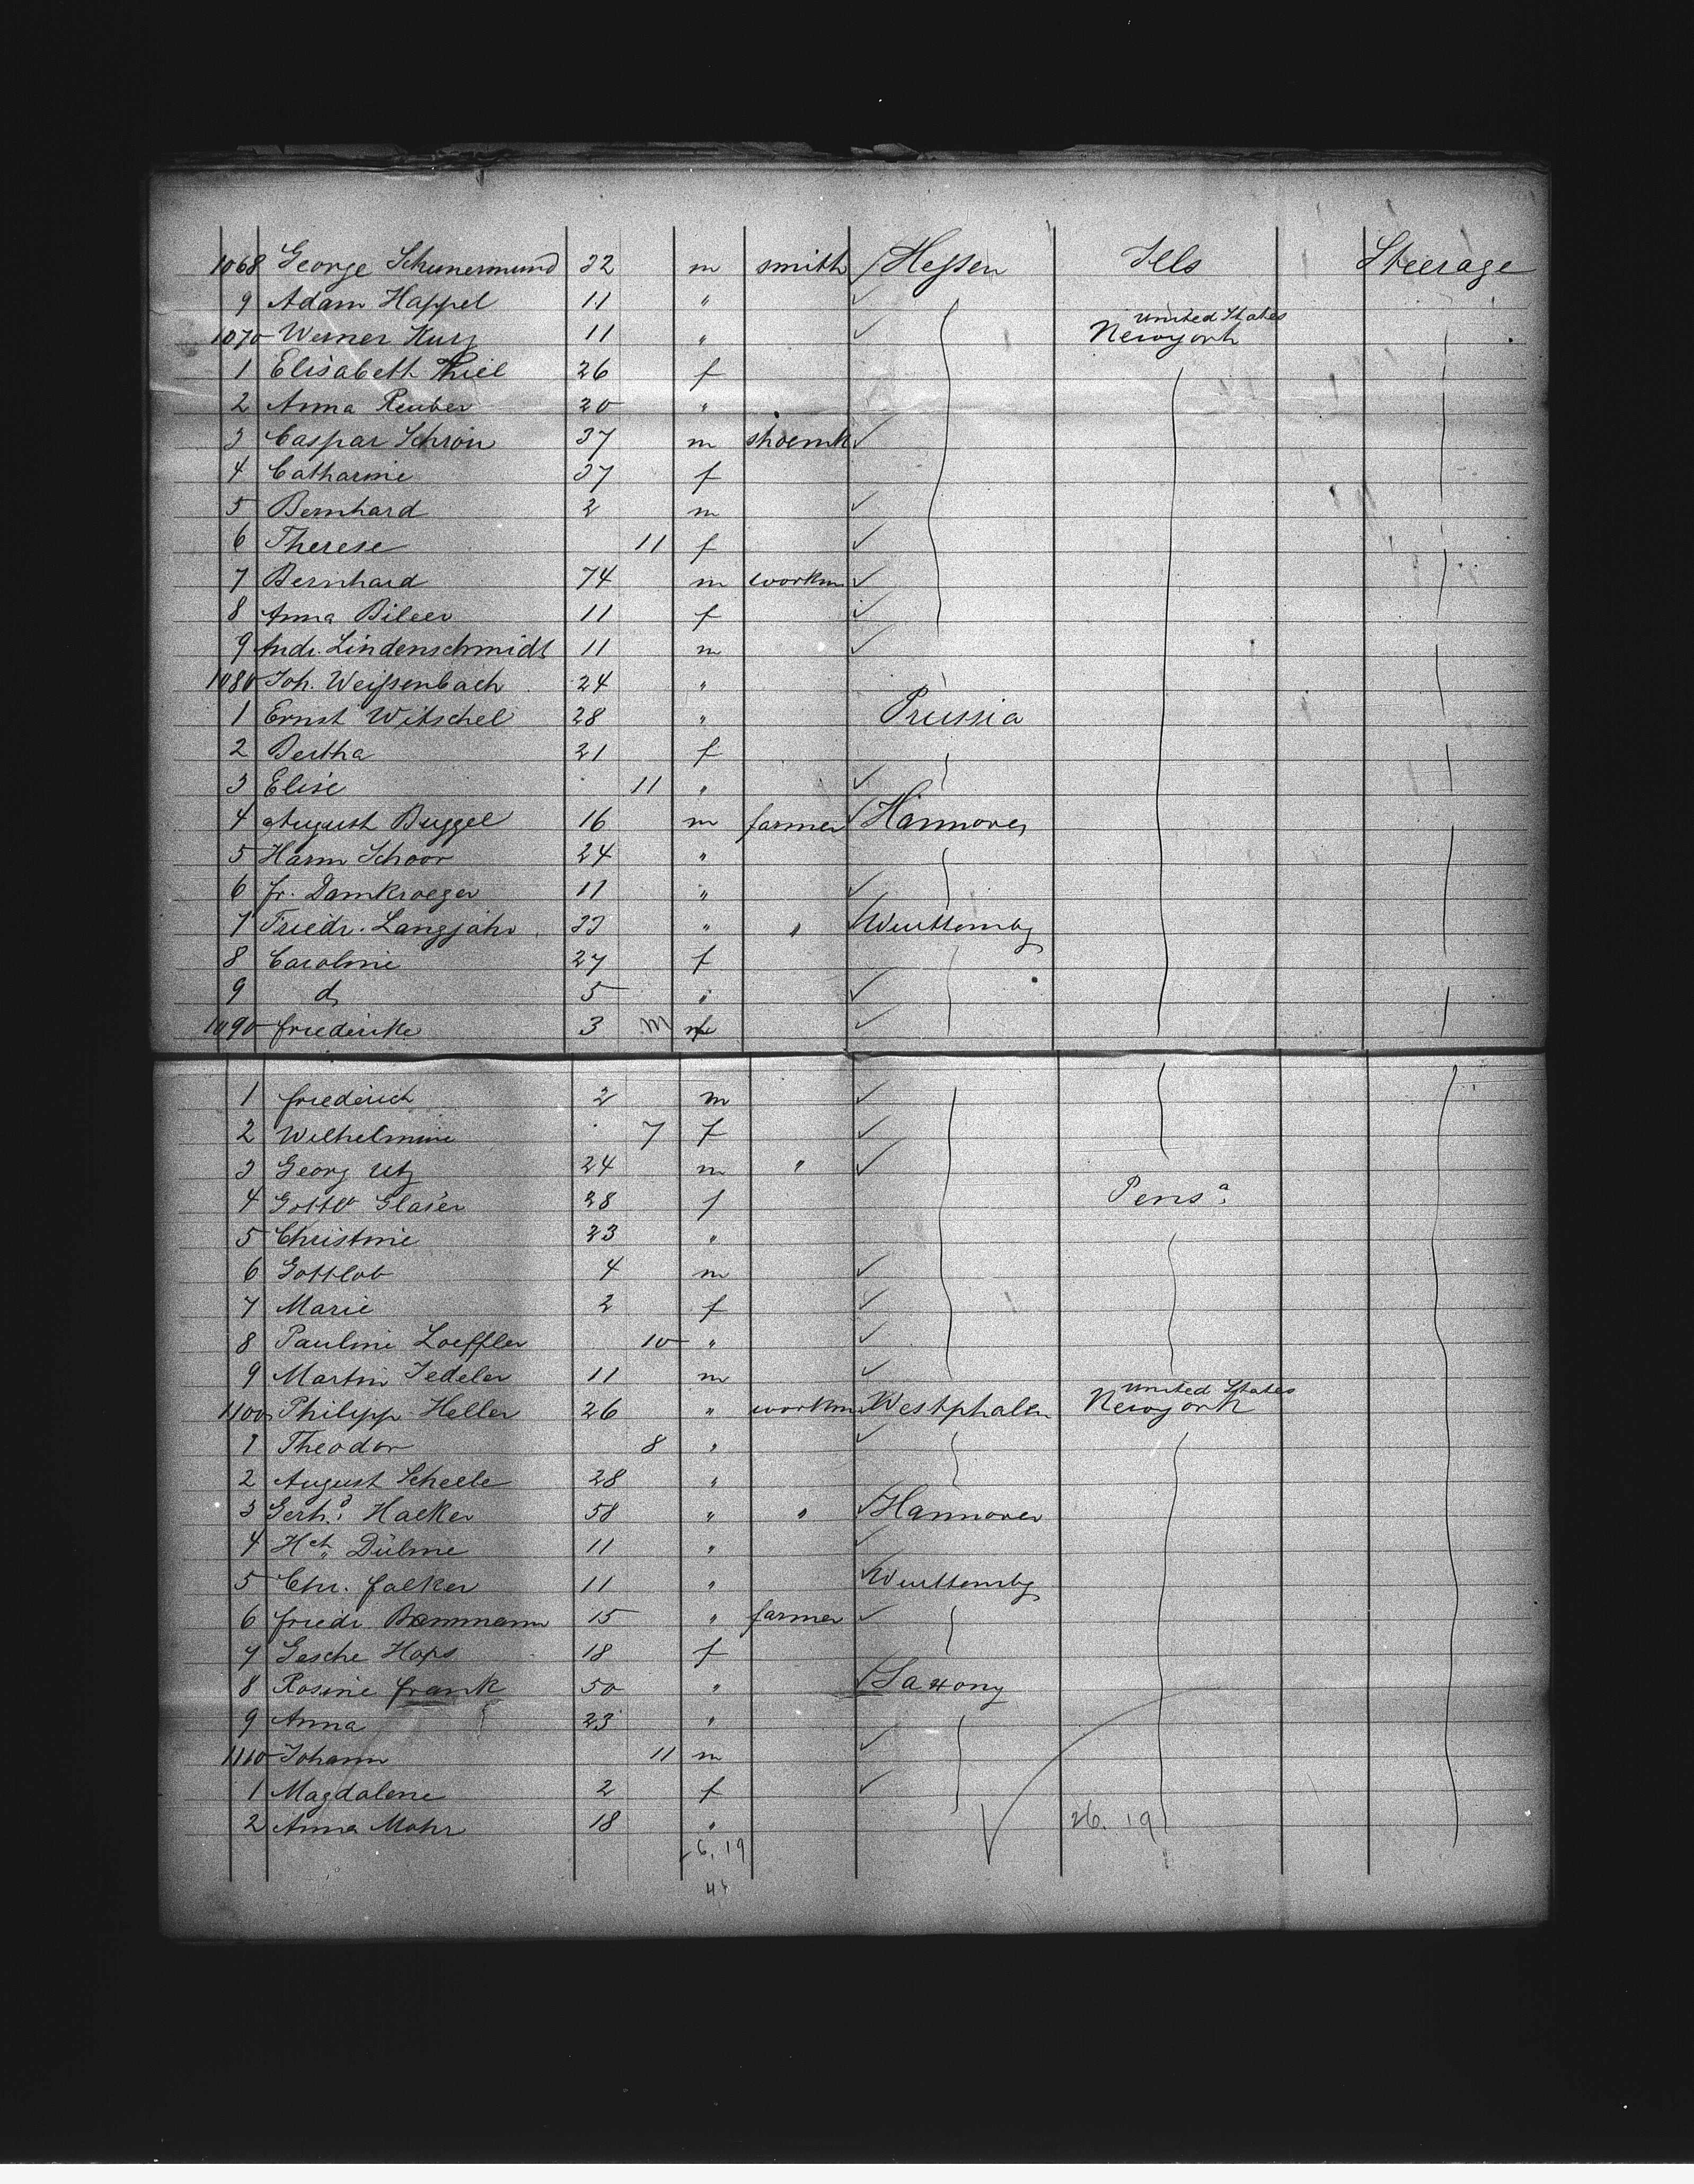 1068 George Schunermund 32 m smith Hessen Ills Steerage
9 Adam Happel 11 "
1070 Werner Kurz 11 " United States Newyork
1 Elisabeth Thiel 26 f
2 Anna Reuber 20 "
3 Caspar Schrön 37 m shoemk
4 Catharine 37 f
5 Bernhard 2 m
6 Therese 11 f
7 Bernhard 74 m workm
8 Anna 11 f
9 Andr. Lindenschmidt 11 m
1080 Joh. Weißenbach 24 "
1 Ernst Witschel 28 " Prussia
2 Bertha 21 f
3 Elise 11 "
4 August Buggel 16 m farmer Hannover
5 Harm Schoor 24 "
6 Fr. Damkroeger 11 "
7 Friedr. Langjahr 33 " " Wurttembg
8 Caroline 27 f
9 do 5 "
1090 Friederike 3 m
1 Friederich 2 m
2 Wilhelmine 7 f
3 Georg Utz 24 m "
4 Gottlb Glaser 28 f Pensa.
5 Christine 23 "
6 Gottlob 4 m
7 Marie 2 f
8 Pauline Loeffler 10 "
9 Martin Jedeler 11 m
1100 Philipp Heller 26 " workm Westphalen United States Newyork
1 Theodor 8 "
2 August Scheele 28 "
3 Gerhd. Hacker 58 " " Hannover
4 Hch. Dülme 11 "
5 Chr. Falker 11 " Wurttembg
6 Friedr 15 " farmer
7 Gesche Hops 18 f
8 Rosine Frank 50 " Saxony
9 Anna 23 "
1110 Johann 11 m
1 Magdalene 2 f
2 Anna Mohr 18 " 26. 19
6. 19